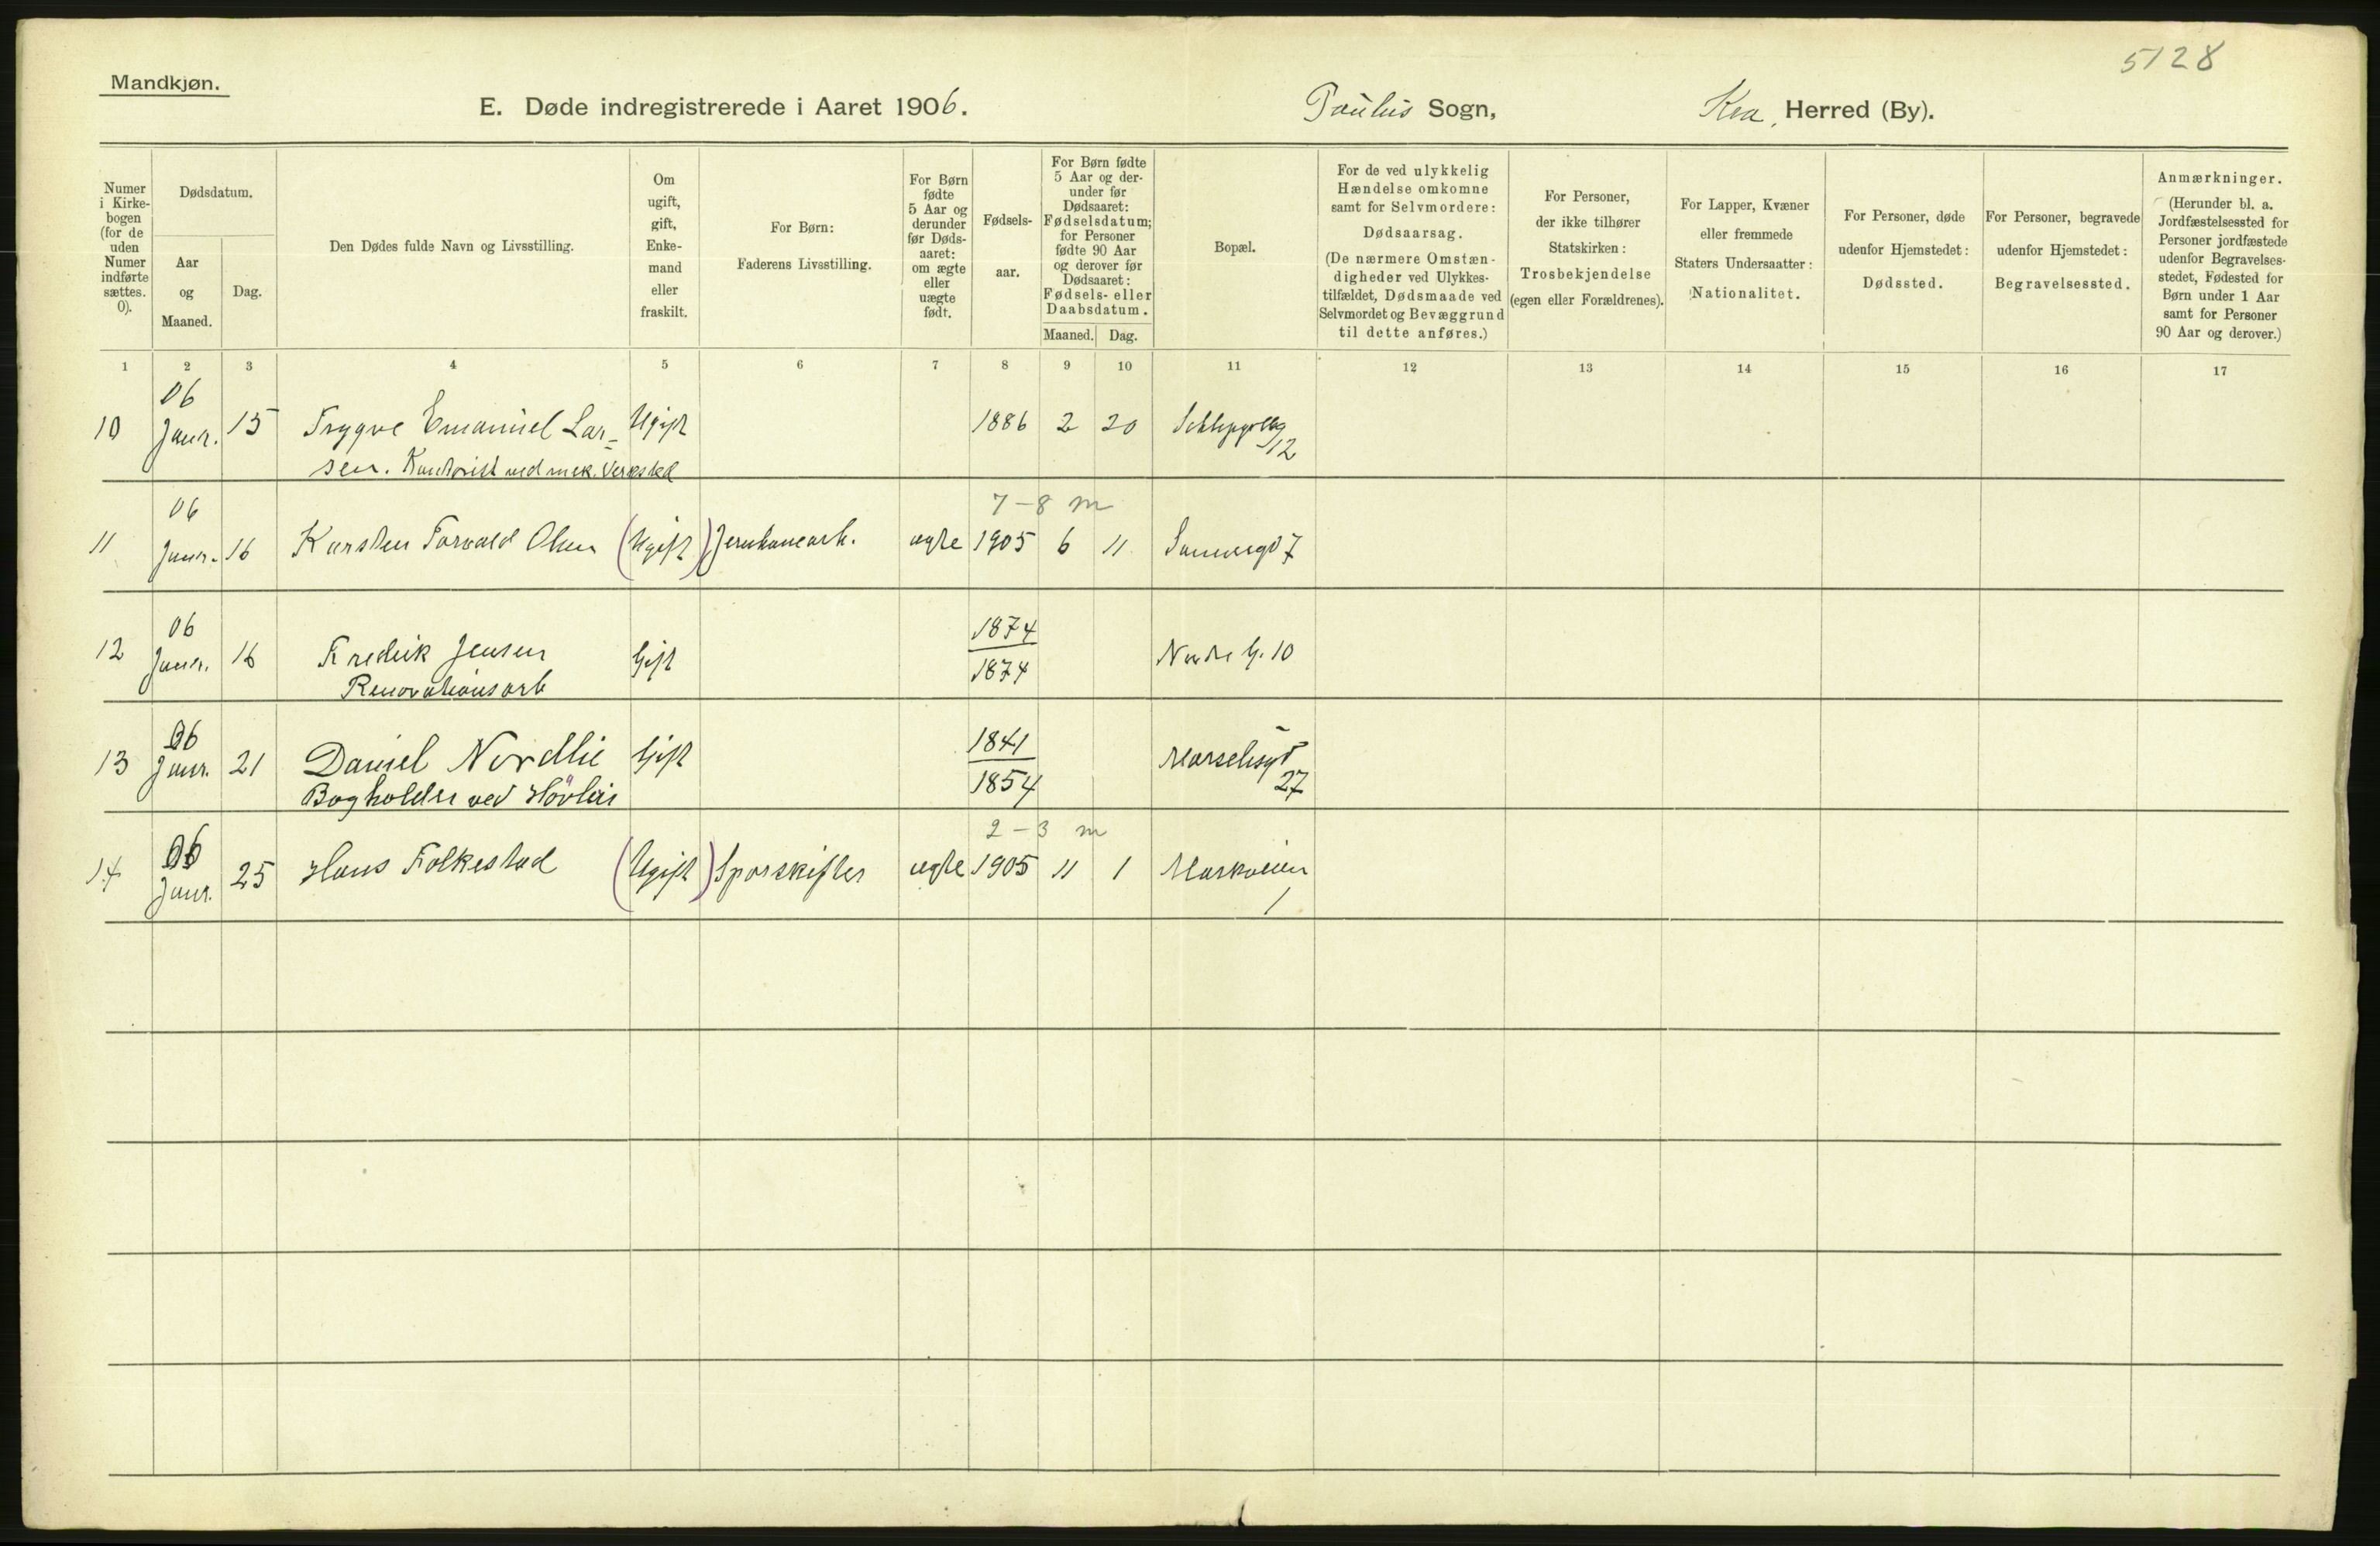 5128
Mandkjøn.
E. Døde indregistrerede i Aaret 1906. Paulus Sogn, Kra, Herred (By).
Numer i Kirke-bogen (for de uden Numer indførte sættes. 0).
Dødsdatum.
Aar og Maaned.
Dag.
Den Dødes fulde Navn og Livsstilling.
Om ugift, gift, Enke-mand eller fraskilt.
For Børn: Faderens Livsstilling.
For Børn fødte 5 Aar og derunder før Døds-aaret: om ægte eller uægte født.
Fødsels-aar.
For Børn fødte 5 Aar og der-under før Dødsaaret: Fødselsdatum; for Personer fødte 90 Aar og derover før Dødsaaret: Fødsels- eller Daabsdatum.
Maaned. Dag.
Bopæl.
For de ved ulykkelig Hændelse omkomne samt for Selvmordere: Dødsaarsag. (De nærmere Omstæn-digheder ved Ulykkes-tilfældet, Dødsmaade ved Selvmordet og Bevæggrund til dette anføres.)
For Personer, der ikke tilhører Statskirken: Trosbekjendelse (egen eller Forældrenes).
For Lapper, Kvæner eller fremmede Staters Undersaatter: Nationalitet.
For Personer, døde udenfor Hjemstedet: Dødssted.
For Personer, begravede udenfor Hjemstedet: Begravelsessted.
Anmærkninger. (Herunder bl. a. Jordfæstelsessted for Personer jordfæstede udenfor Begravelses-stedet, Fødested for Børn under 1 Aar samt for Personer 90 Aar og derover.)
1 2 3 4 5 6 7 8 9 10 11 12 13 14 15 16 17
06
10 Janr. 15 Trygve Emanuel Lar- Ugift 1886 2 20
sen. Kontorist ved mek. Verksted 12
06 7-8 m
11 Janr. 16 Karsten Torvald Olsen (Ugift) Jernbanearb. ægte 1905 6 11 7
06 1874
12 Janr. 16 Fredrik Jensen Gift 1874 Nordre G. 10
Renovationsarb
06 1841
13 Janr. 21 Daniel Nordlie Gift 1854 Marselisgt
Bogholder ved 27
06 2-3 m
14 Janr. 25 Hans Folkestad (Ugift) Sporskifter ægte 1905 11 1 Markveien
1